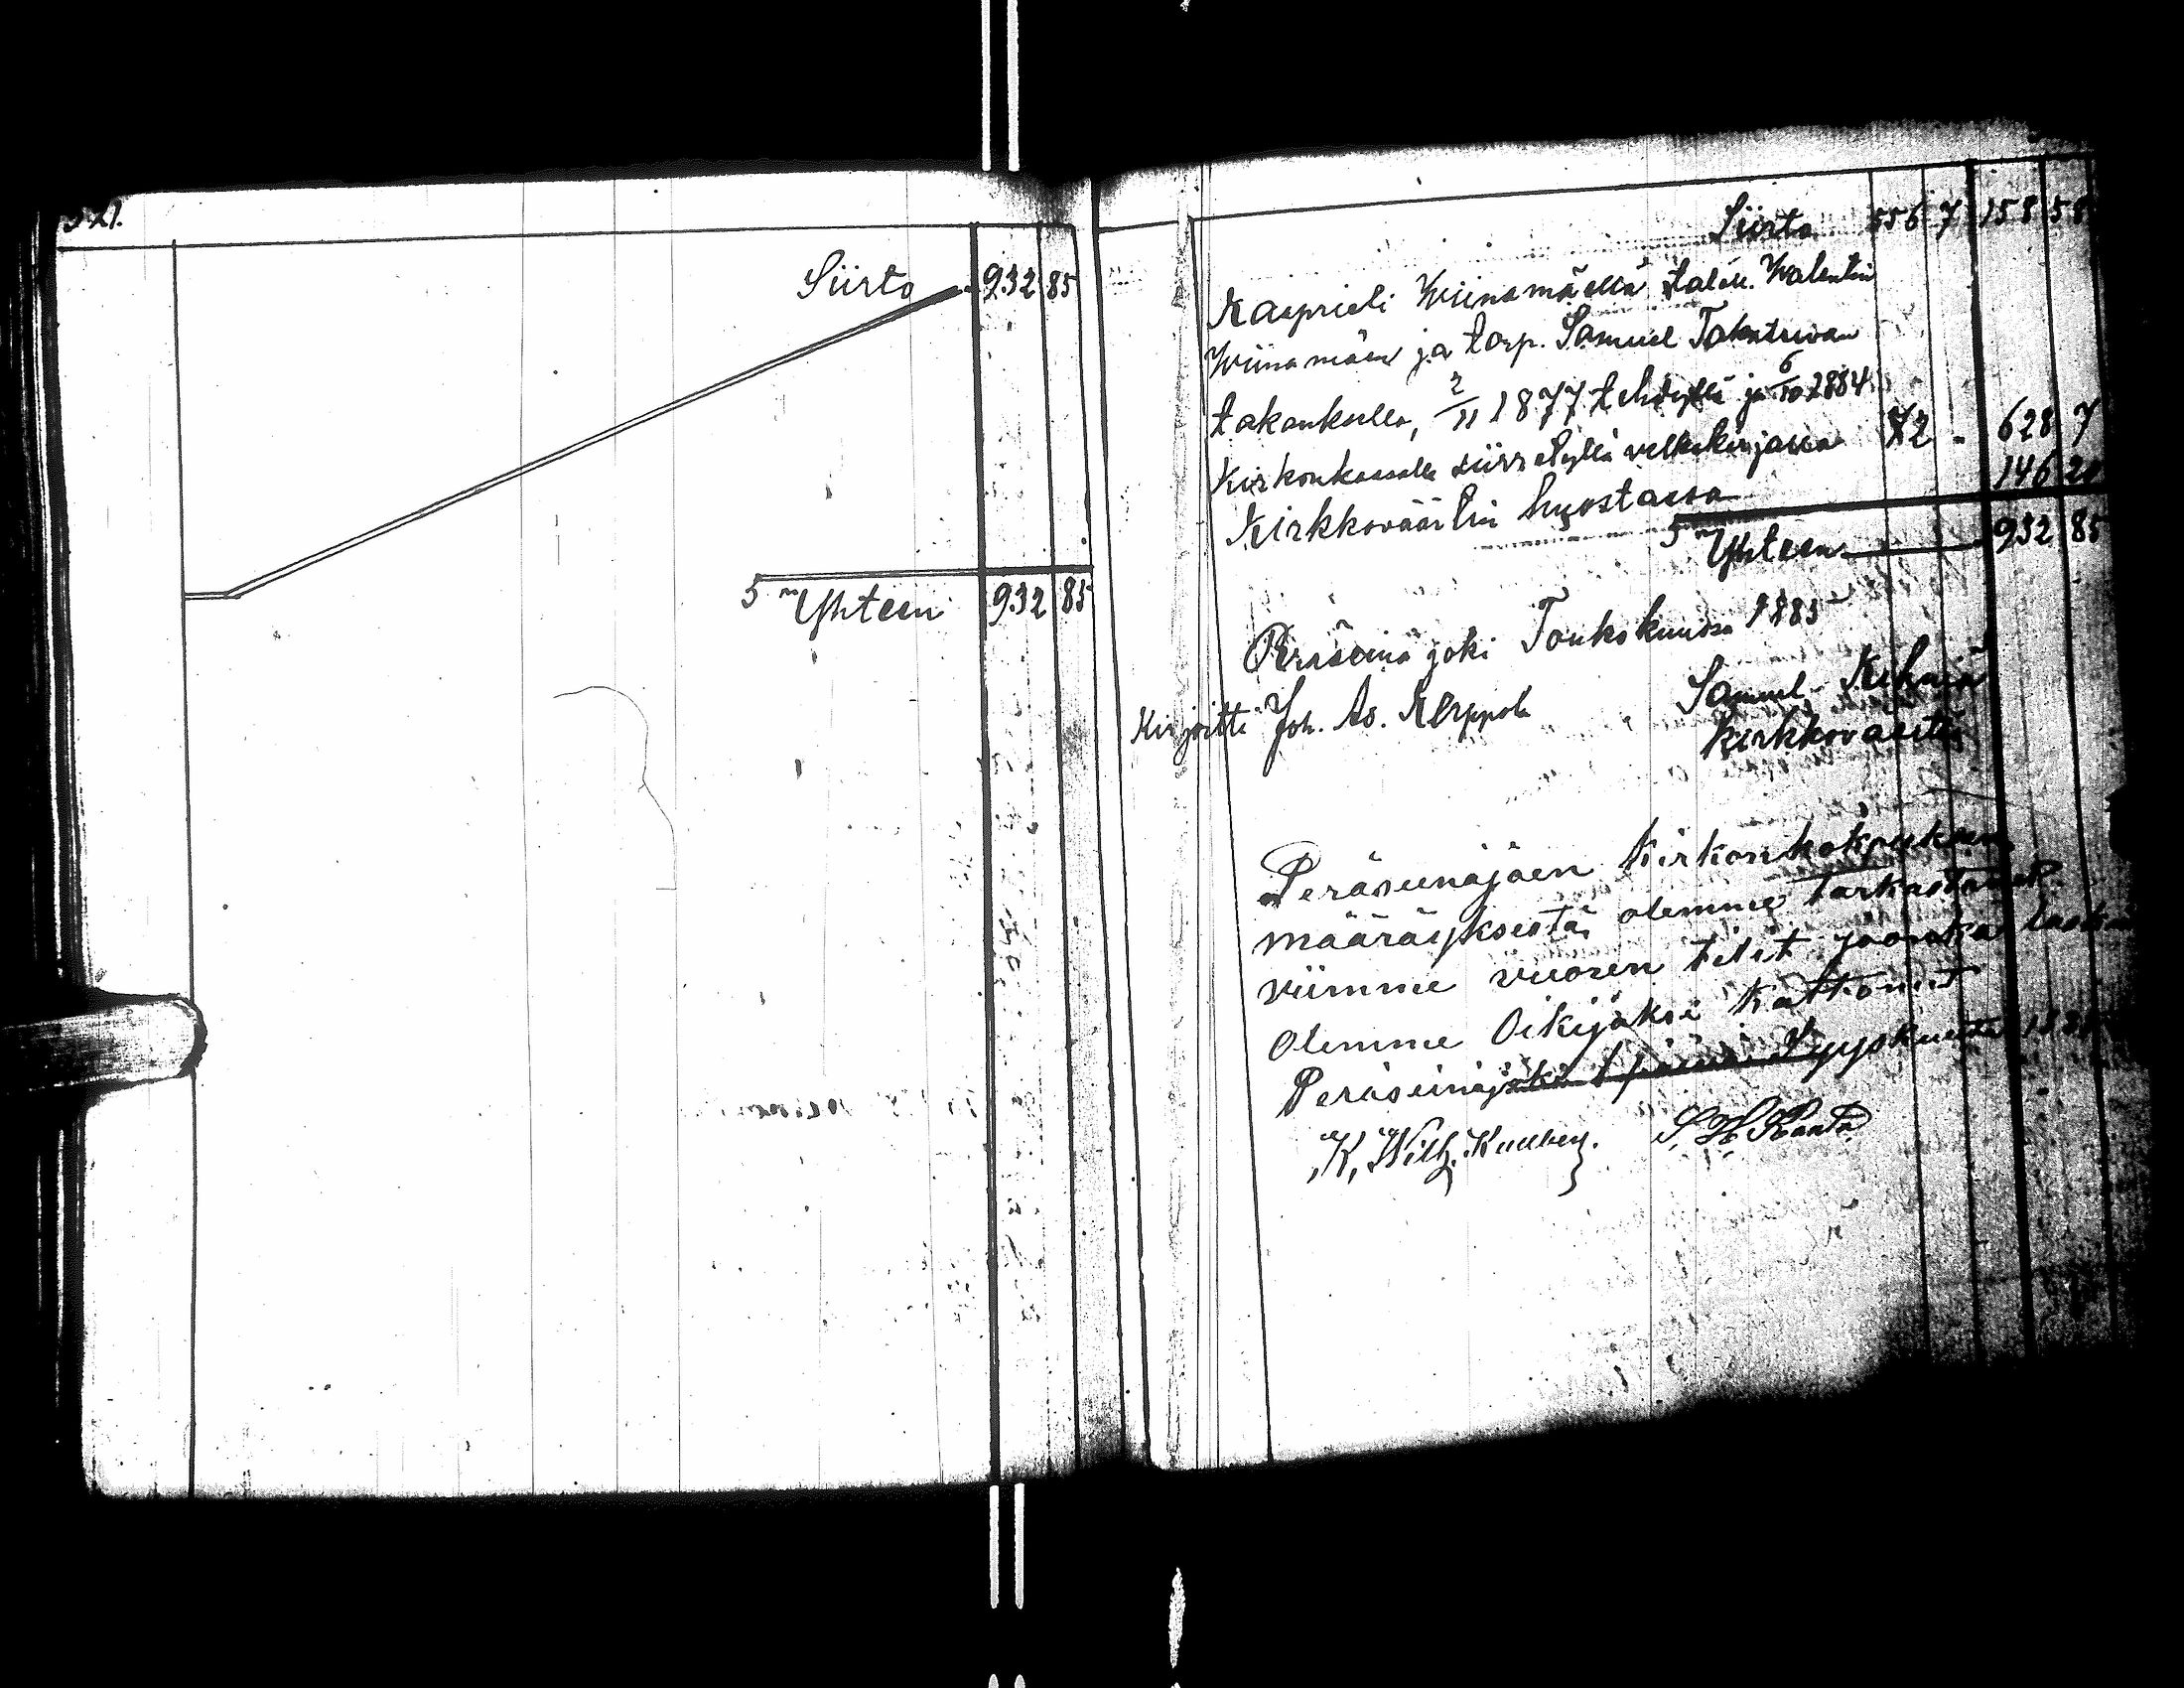 Siirto 932 85
5 m Yhteen 932 85
Siirto 556 7 158 58
Kasprieli Wiinamäellä talon. Walentin
Wiinamäen ja torp. Samuel
takauksella, 2/11 1877 tehdyllä ja 6/10 2884
Kirkonkassalle siirretyllä velkakirjassa 72 - 628 7
Kirkkoväärtin huostassa 146 20
5 m Yhteen 932 85
Peräseinäjoki Toukokuussa 1885
Kirjoitti Joh. As. Kerppola
Samuel
Kirkkovaärti
Peräseinäjoen Kirkonkokouksen
määräyksestä olemme tarkastaneet
viimme vuosen tilit jaonka
Olemme Oikijaksi Kattonut
Peräseinäjoki 1 päivä Syyskuuta
K. Wilh. S. H. Ranta